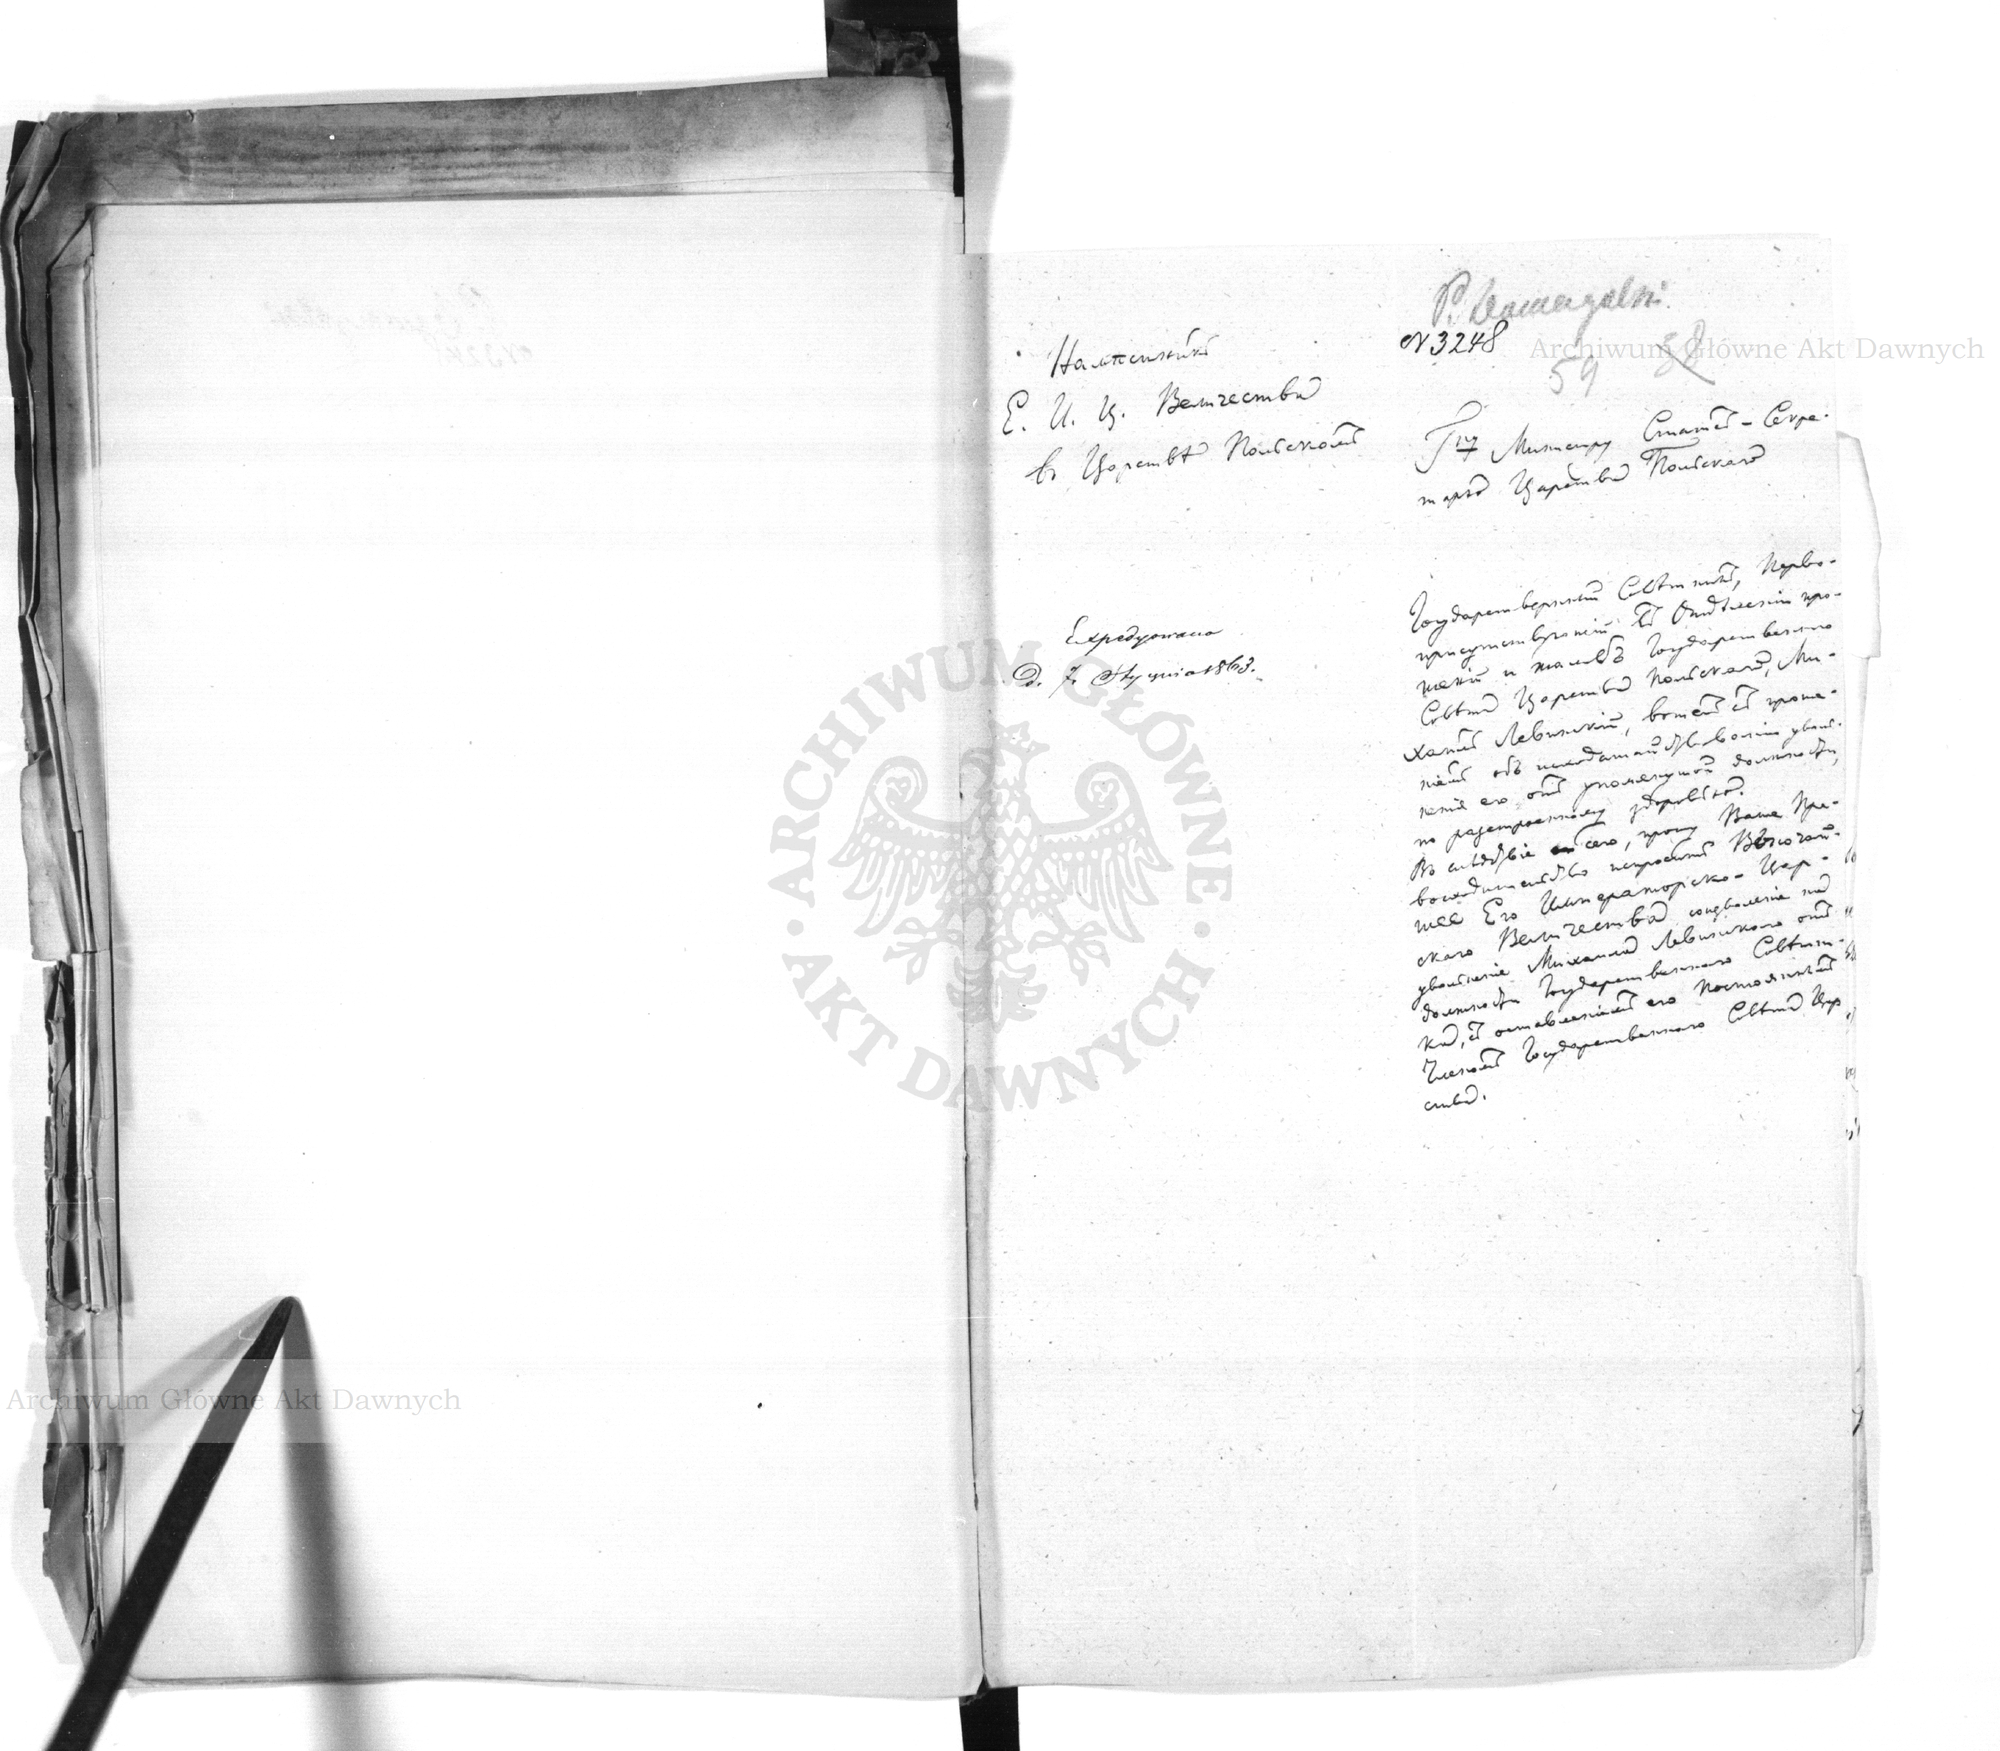 P. Domagalski
N 3248
59 58
Намѣстникъ
Е. И. Ц. Величества
въ Царствѣ Польскомъ
Гну Министру Статсъ-Секре-
тарю Царства Польскаго
Expedyowano
d. 7. Stycznia 1863.
Государственный Совѣтникъ, Перво-
присутствующій въ Отдѣленіи про-
шеній и жалобъ Государственнаго
Совѣта Царства Польскаго, Ми-
хаилъ Левинскій, вошелъ съ проше-
ніемъ объ исходатайствованіи уволь-
ненія его отъ упомянутой должности,
по разстроенному здоровью.
Въ слѣдствіе сего, прошу Ваше Пре-
восходительство испросить Высочай-
шее Его Императорско-Цар-
скаго Величества соизволеніе на
увольненіе Михаила Левинскаго отъ
должности Государственнаго Совѣтни-
ка, съ оставленіемъ его Постояннымъ
Членомъ Государственнаго Совѣта Цар
ства.
Archiwum Główne Akt Dawnych
ARCHIWUM GŁÓWNE
AKT DAWNYCH
Archiwum Główne Akt Dawnych